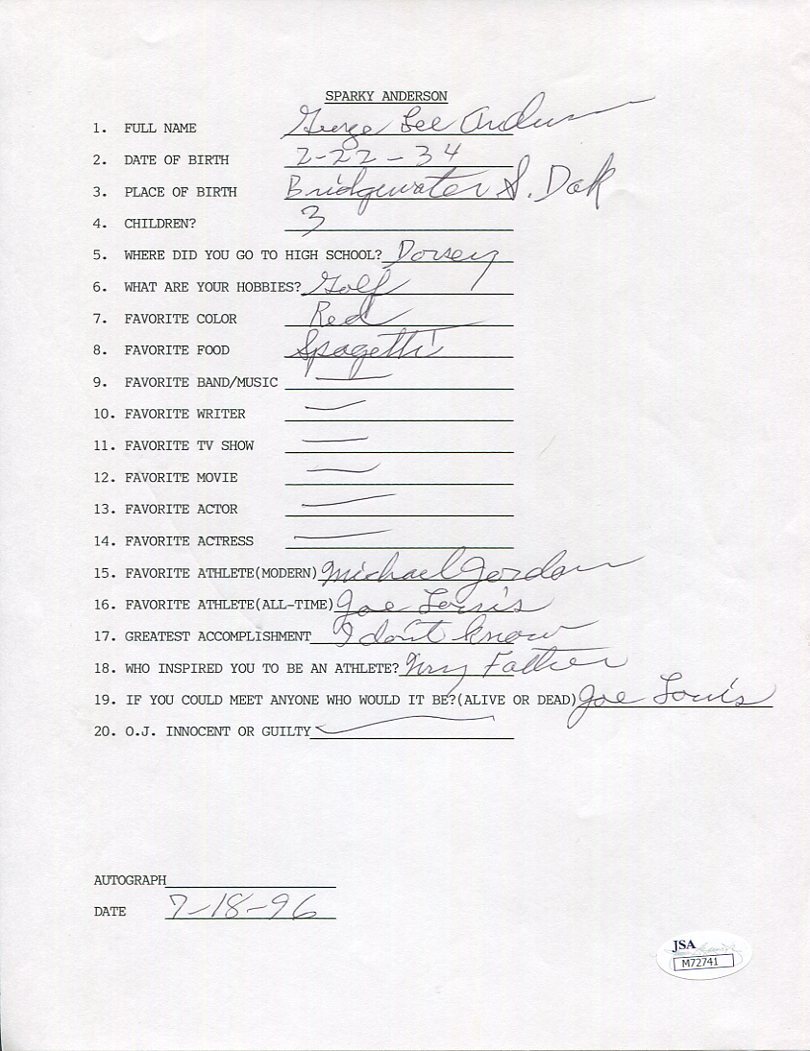 SPARKY ANDERSON
1. FULL NAME George Lee Anderson
2. DATE OF BIRTH 2-22-34
3. PLACE OF BIRTH Bridgewater S. Dak
4. CHILDREN? 3
5. WHERE DID YOU GO TO HIGH SCHOOL? Dorsey
6. WHAT ARE YOUR HOBBIES? Golf
7. FAVORITE COLOR Red
8. FAVORITE FOOD Spagetti
9. FAVORITE BAND/MUSIC —
10. FAVORITE WRITER —
11. FAVORITE TV SHOW —
12. FAVORITE MOVIE —
13. FAVORITE ACTOR —
14. FAVORITE ACTRESS —
15. FAVORITE ATHLETE(MODERN) Michael Jordan
16. FAVORITE ATHLETE(ALL-TIME) Joe Louis
17. GREATEST ACCOMPLISHMENT I don't know
18. WHO INSPIRED YOU TO BE AN ATHLETE? My Father
19. IF YOU COULD MEET ANYONE WHO WOULD IT BE?(ALIVE OR DEAD) Joe Louis
20. O.J. INNOCENT OR GUILTY —
AUTOGRAPH
DATE 7-18-96
JSA
M72741